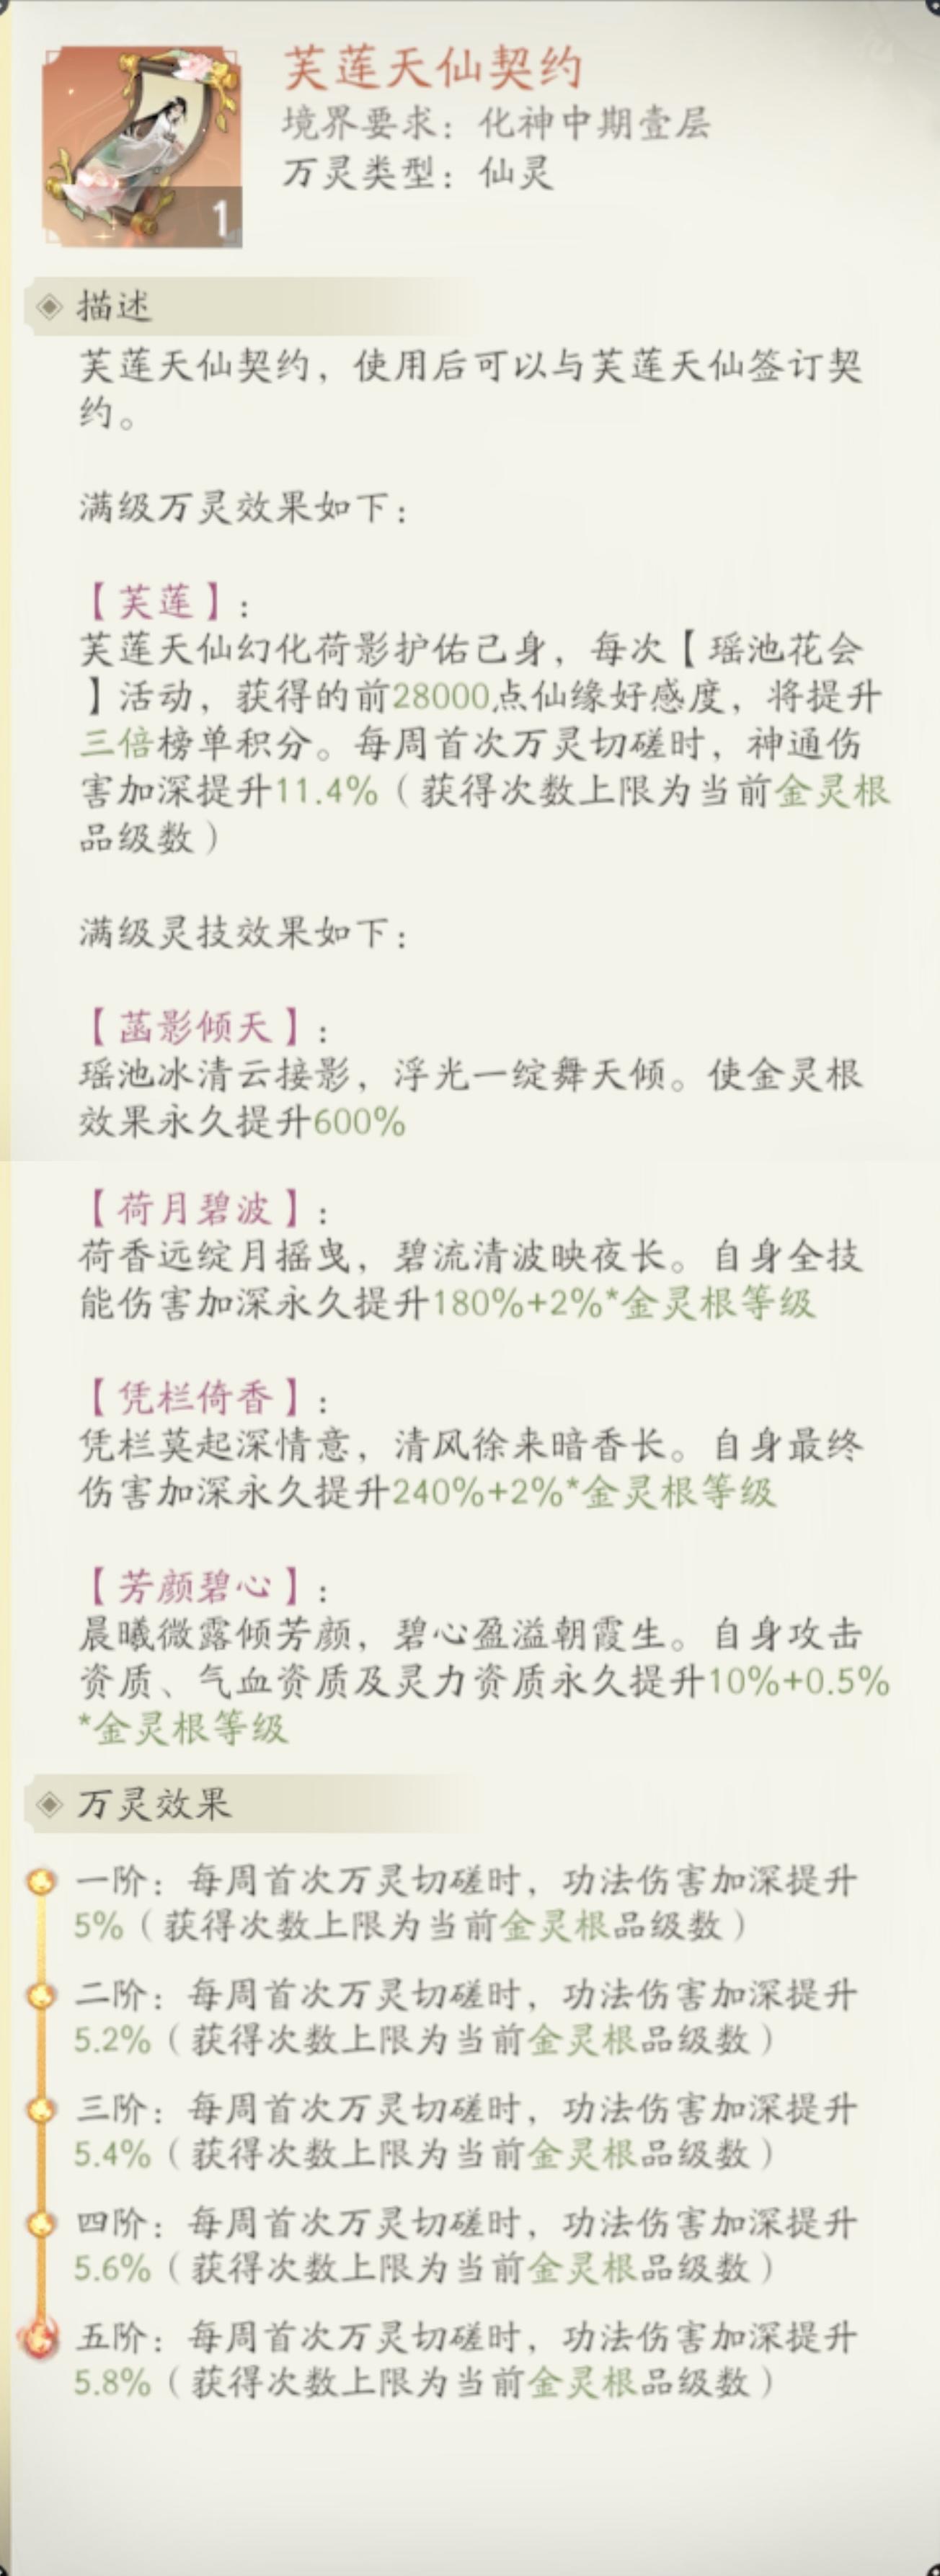 芙莲天仙契约
境界要求：化神中期壹层
万灵类型：仙灵
1
描述
芙莲天仙契约，使用后可以与芙莲天仙签订契
约。
满级万灵效果如下：
【芙莲】：
芙莲天仙幻化荷影护佑己身，每次【瑶池花会
】活动，获得的前28000点仙缘好感度，将提升
三倍榜单积分。每周首次万灵切磋时，神通伤
害加深提升11.4%（获得次数上限为当前金灵根
品级数）
满级灵技效果如下：
【菡影倾天】：
瑶池冰清云接影，浮光一绽舞天倾。使金灵根
效果永久提升600%
【荷月碧波】：
荷香远绽月摇曳，碧流清波映夜长。自身全技
能伤害加深永久提升180%+2%*金灵根等级
【凭栏倚香】：
凭栏莫起深情意，清风徐来暗香长。自身最终
伤害加深永久提升240%+2%*金灵根等级
【芳颜碧心】：
晨曦微露倾芳颜，碧心盈溢朝霞生。自身攻击
资质、气血资质及灵力资质永久提升10%+0.5%
*金灵根等级
万灵效果
一阶：每周首次万灵切磋时，功法伤害加深提升
5%（获得次数上限为当前金灵根品级数）
二阶：每周首次万灵切磋时，功法伤害加深提升
5.2%（获得次数上限为当前金灵根品级数）
三阶：每周首次万灵切磋时，功法伤害加深提升
5.4%（获得次数上限为当前金灵根品级数）
四阶：每周首次万灵切磋时，功法伤害加深提升
5.6%（获得次数上限为当前金灵根品级数）
五阶：每周首次万灵切磋时，功法伤害加深提升
5.8%（获得次数上限为当前金灵根品级数）